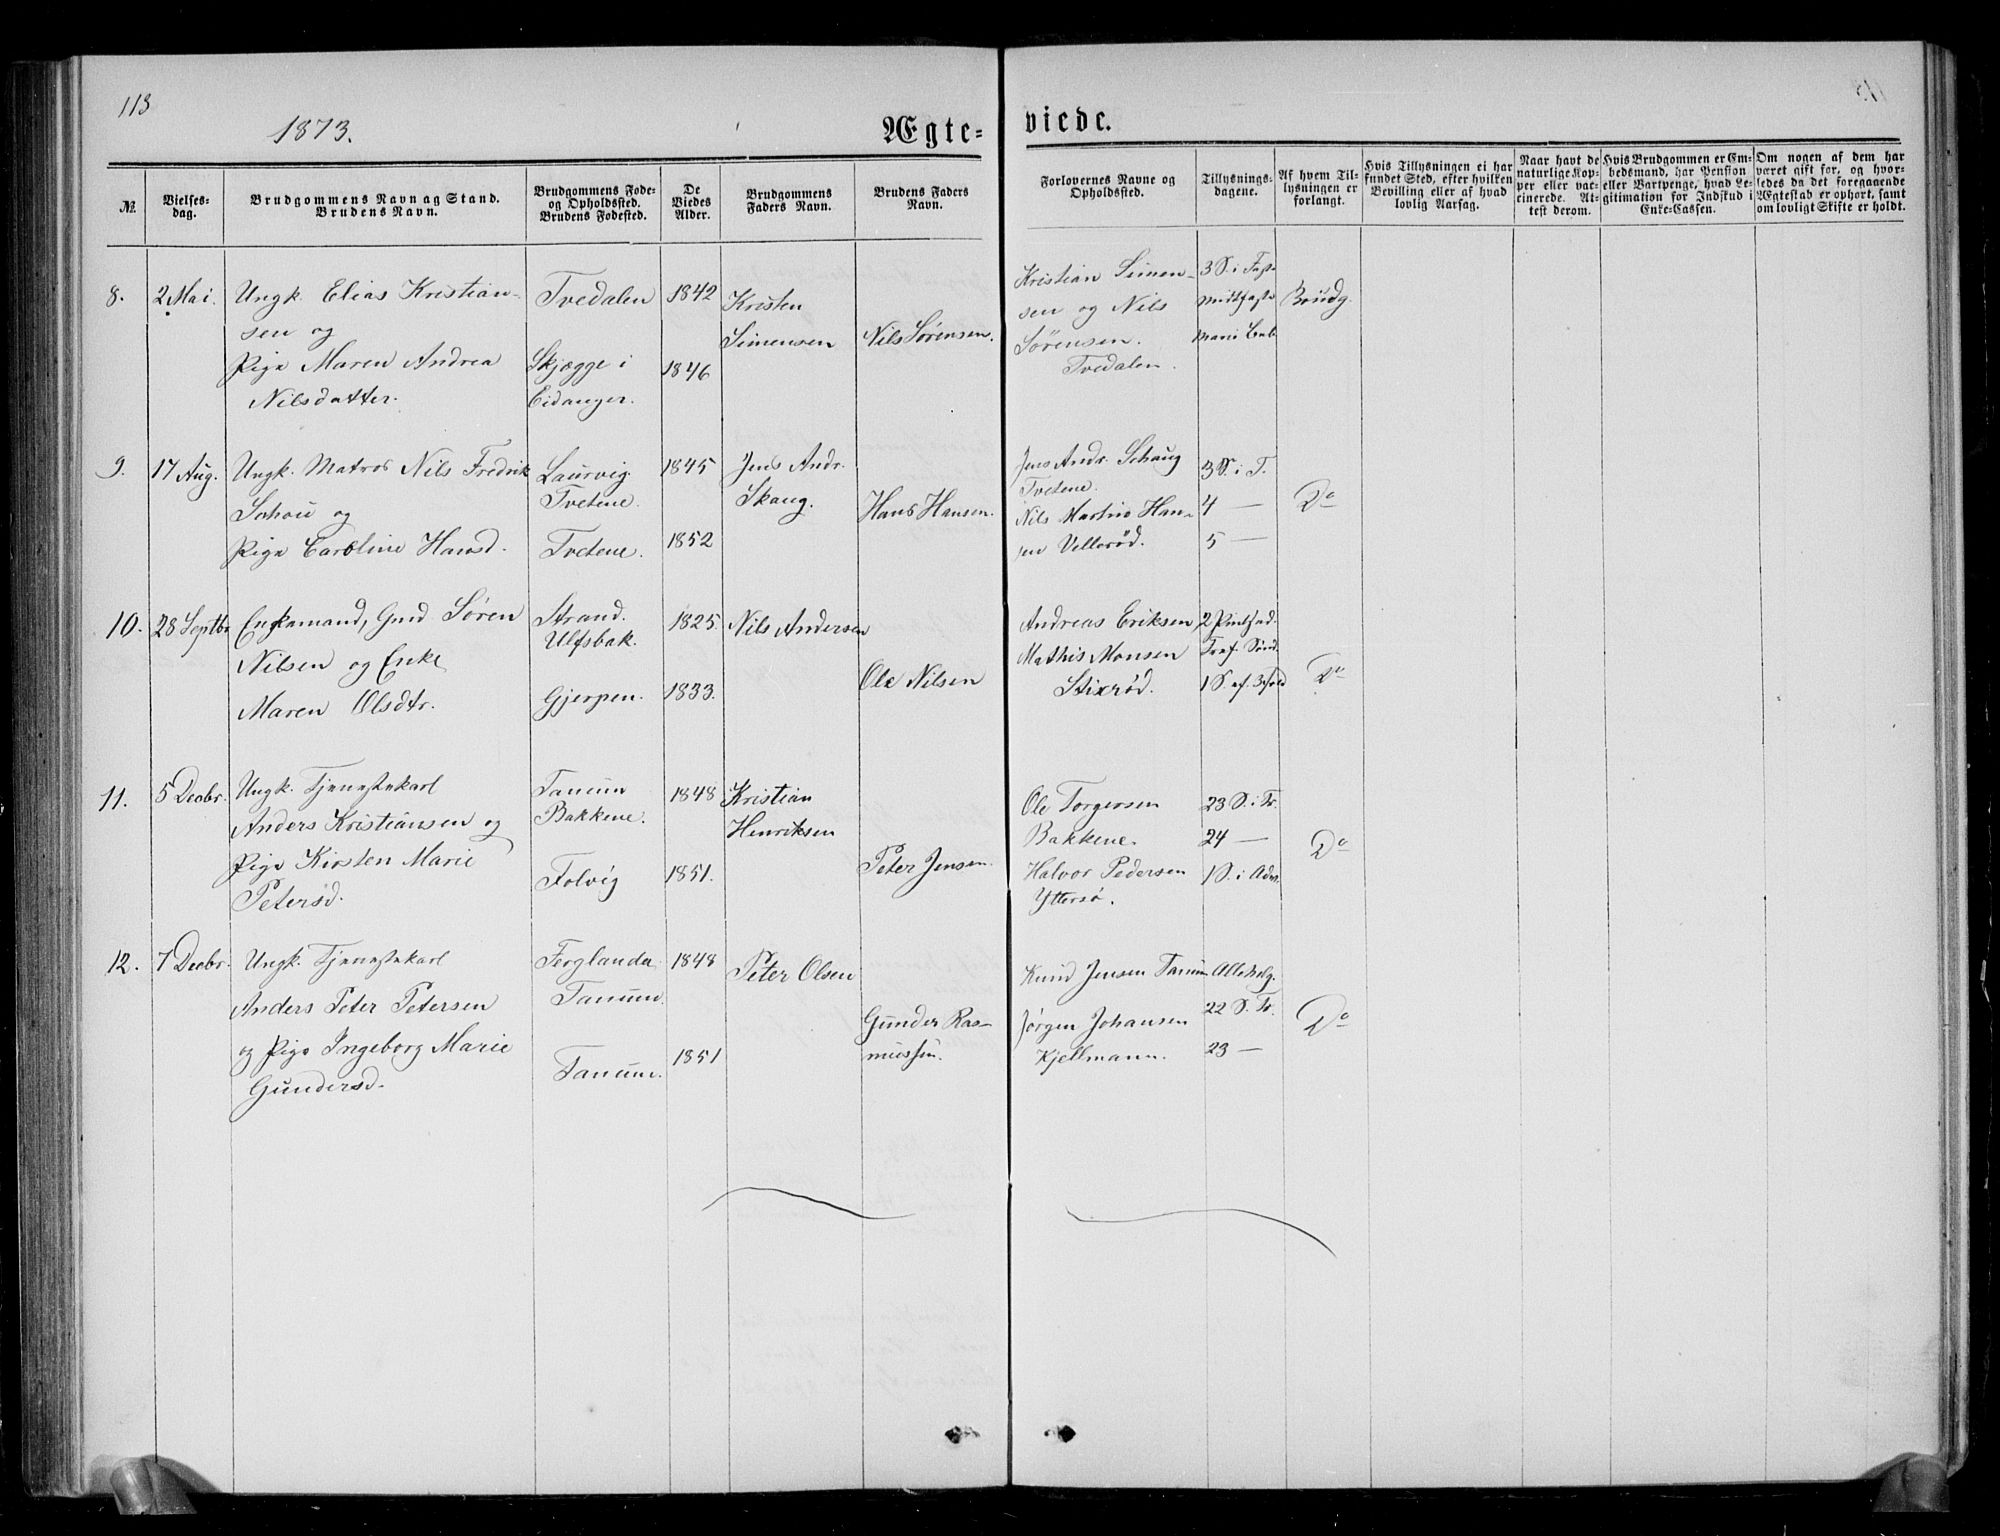 113
1873.
Ægte=
viede.
№
Vielses-
dag.
Brudgommens Navn og Stand.
Brudens Navn.
Brudgommens Føde-
og Opholdssted.
Brudens Fødested.
De
Viedes
Alder.
Brudgommens
Faders Navn.
Brudens Faders
Navn.
Forlovernes Navne og
Opholdssted.
Tillysnings-
dagene.
Af hvem Til-
lysningen er
forlangt.
Hvis Tillysningen ei har
fundet Sted, efter hvilken
Bevilling eller af hvad
lovlig Aarsag.
Naar havt de
naturlige Kop-
per eller vac-
cinerede. At-
test derom.
Hvis Brudgommen er Em-
bedsmand, har Pension
eller Vartpenge, hvad Le-
gitimation for Indskud i
Enke-Cassen.
Om nogen af dem har
været gift før, og hvor-
ledes da det foregaaende
Ægteskab er ophørt, samt
om lovligt Skifte er holdt.
8.
2 Mai.
Ungk. Elias Kristian-
sen og
Pige Maren Andrea
Nilsdatter.
Tvedalen
Skjegge i
Eidanger.
1842
1846
Kristen
Simensen
Nils Sørensen.
Kristian Simen-
sen og Nils
Sørensen.
Tvedalen.
3 S. i Faste
Midtfaste
Mariæ Beb
Brudg.
9.
17 Aug.
Ungk. Matros Nils Fredrik
Schou og
Pige Caroline Hansd.
Laurvig
Tvetene.
Tvetene.
1845
1852
Jens Andr.
Skaug.
Hans Hansen.
Jens Andr. Schaug
Tvetene.
Nils Martin Han-
sen Vellerød.
3 S. i T.
4 —
5 —
Do
10.
28 Septbr
Enkemand, Gmd Søren
Nilsen og Enke
Maren Olsdtr.
Strand.
Ulfsbak.
Gjerpen.
1825.
1833.
Nils Andersen
Ole Nilsen
Andreas Eriksen
Mathis Monsen
Stixrød.
2 Pintsed.
Tref. Sønd.
1 S. ef. Trefold
Do
11.
5 Decbr.
Ungk. Tjenestekarl
Anders Kristiansen og
Pige Kirsten Marie
Petersd.
Tanum
Bakkene.
Folvig
1848
1851.
Kristian
Henriksen
Peter Jensen.
Ole Torgersen
Bakkene.
Halvor Pedersen
Yttersø.
23 S. i Tr.
24 —
1 S. i Adv.
Do
12.
7 Decbr.
Ungk. Tjenestekarl
Anders Peter Petersen
og Pige Ingeborg Marie
Gundersd.
Tanum.
Tanum.
1848
1851
Peter Olsen
Gunder Ras-
mussen.
Knud Jensen Tanum
Jørgen Johansen
Kjellmann.
Allehelg.
22 S. Tr.
23 —
Do